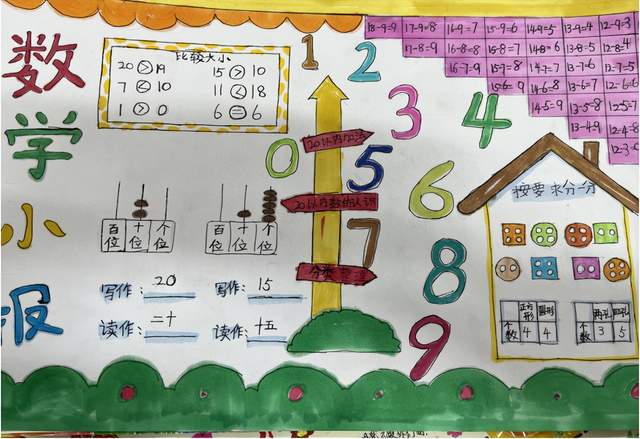 数学小报
比较大小
20>19 15>10
7<10 11<18
1>0 6=6
0 1 2 3 4 5 6 7 8 9
20以内加法
20以内数的认识
分类
18-9=9 17-9=8 16-9=7 15-9=6 14-9=5 13-9=4 12-9=3
17-8=9 16-8=8 15-8=7 14-8=6 13-8=5 12-8=4
16-7=9 15-7=8 14-7=7 13-7=6 12-7=5
15-6=9 14-6=8 13-6=7 12-6=6
14-5=9 13-5=8
13-4=9
百位 十位 个位
百位 十位 个位
写作:20 写作:15
读作:二十 读作:十五
按要求分一分
正方形 圆形
个数 4 4
两孔 四孔
个数 3 5